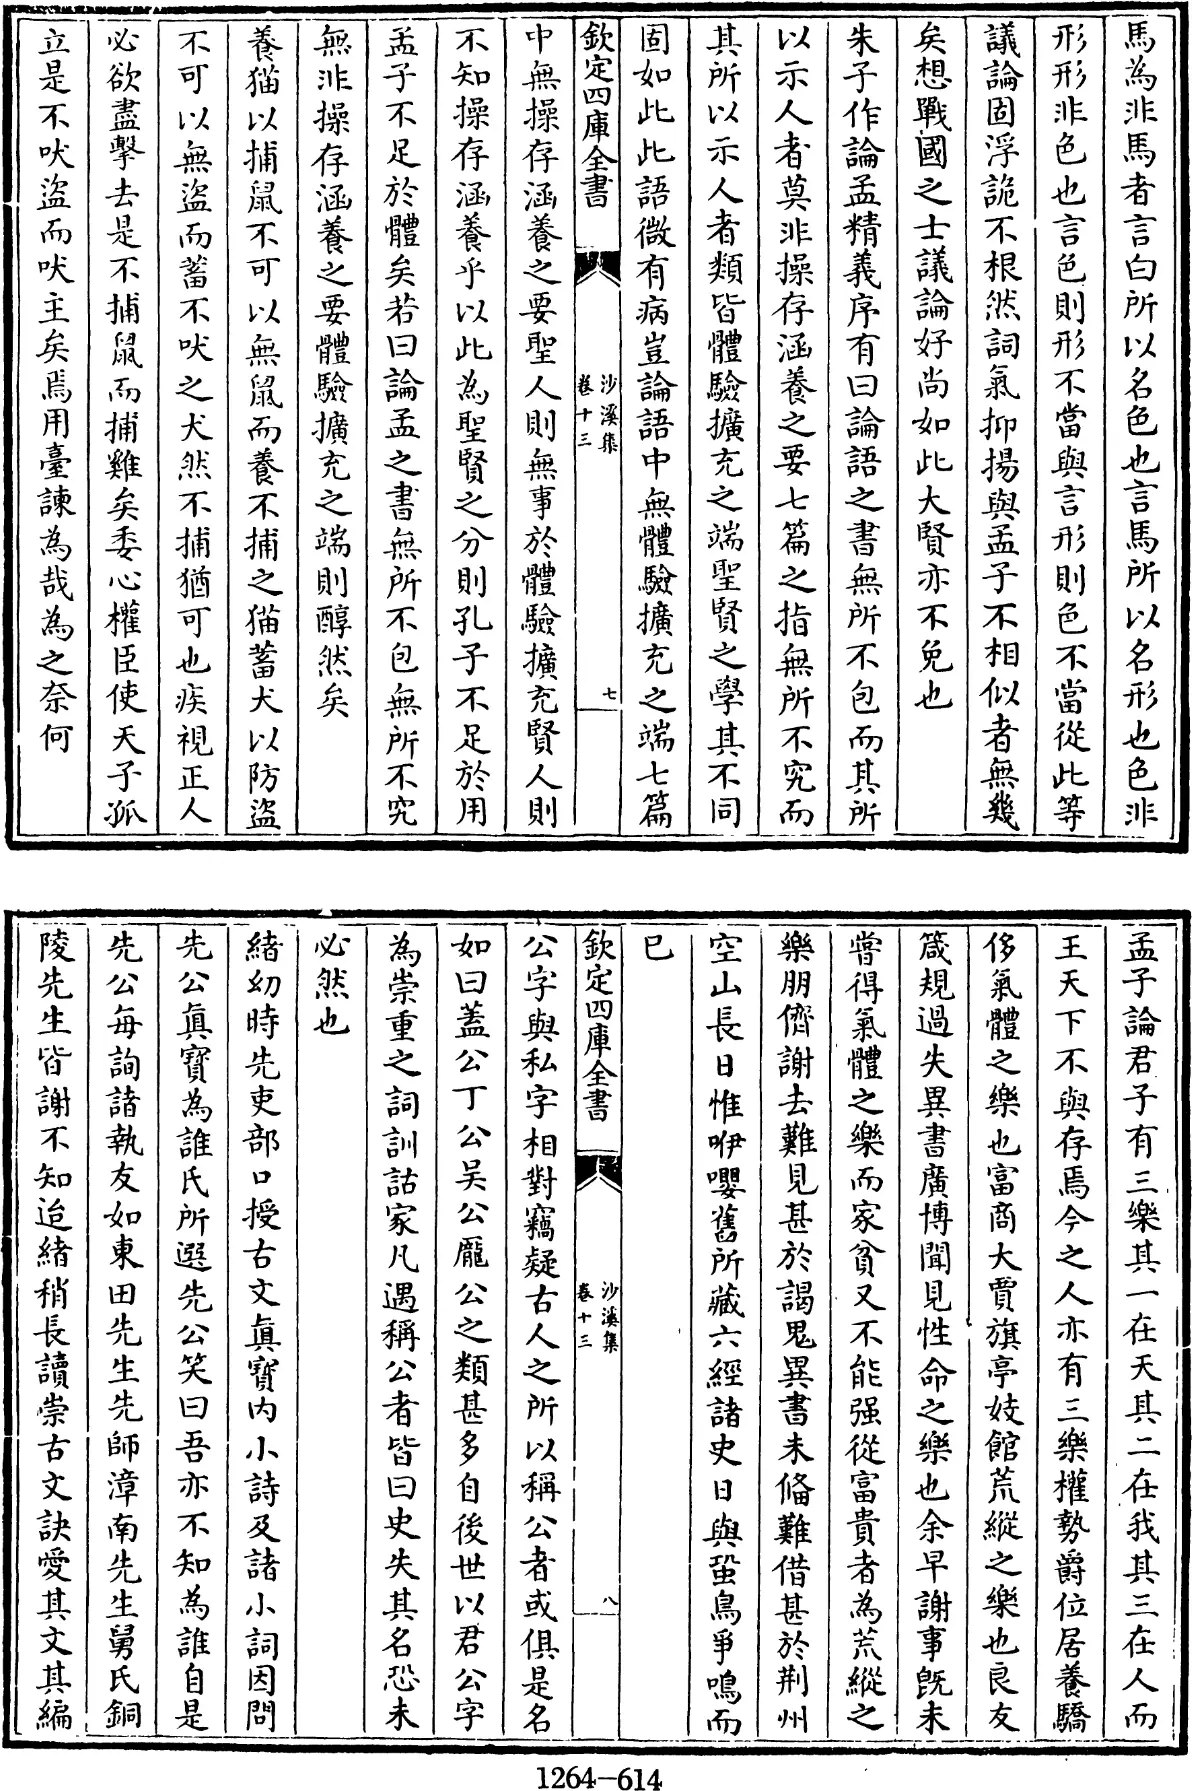 馬為非馬者言白所以名色也言馬所以名形也色非
形形非色也言色則形不當與言形則色不當從此等
議論固浮詭不根然詞氣抑揚與孟子不相似者無幾
矣想戰國之士議論好尚如此大賢亦不免也
朱子作論孟精義序有曰論語之書無所不包而其所
以示人者莫非操存涵養之要七篇之指無所不究而
其所以示人者類皆體驗擴充之端聖賢之學其不同
固如此此語微有病豈論語中無體驗擴充之端七篇
欽定四庫全書
沙溪集
卷十三
七
中無操存涵養之要聖人則無事於體驗擴充賢人則
不知操存涵養乎以此為聖賢之分則孔子不足於用
孟子不足於體矣若曰論孟之書無所不包無所不究
無非操存涵養之要體驗擴充之端則醇然矣
養猫以捕鼠不可以無鼠而養不捕之猫蓄犬以防盜
不可以無盜而蓄不吠之犬然不捕猶可也疾視正人
必欲盡擊去是不捕鼠而捕雞矣委心權臣使天子孤
立是不吠盜而吠主矣焉用臺諫為哉為之奈何
孟子論君子有三樂其一在天其二在我其三在人而
王天下不與存焉今之人亦有三樂權勢爵位居養驕
侈氣體之樂也富商大賈旗亭妓館荒縱之樂也良友
箴規過失異書廣博聞見性命之樂也余早謝事既未
嘗得氣體之樂而家貧又不能强從富貴者為荒縱之
樂朋儕謝去難見甚於謁鬼異書未偹難借甚於荆州
空山長日惟咿嚶舊所藏六經諸史日與蛩鳥爭鳴而
已
欽定四庫全書
沙溪集
卷十三
八
公字與私字相對竊疑古人之所以稱公者或俱是名
如曰葢公丁公吴公龐公之類甚多自後世以君公字
為崇重之詞訓詁家凡遇稱公者皆曰史失其名恐未
必然也
緒幼時先吏部口授古文眞寶内小詩及諸小詞因問
先公眞寶為誰氏所選先公笑曰吾亦不知為誰自是
先公每詢諸執友如東田先生先師漳南先生舅氏銅
陵先生皆謝不知迨緒稍長讀崇古文訣愛其文其編
1264-614